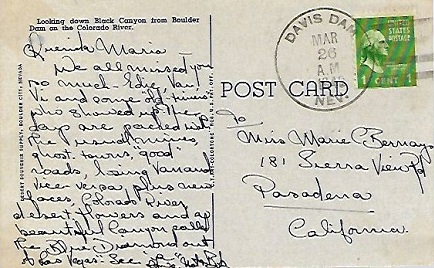 Looking down Black Canyon from Boulder
Dam on the Colorado River.
Querida Maria —
We all missed you
so much - Edie, Van,
Vi and some old timers
who showed up. The
days are packed with
the usual mines,
ghost towns, good
roads, being Van and
vice versa, plus new
places, Colorado River
desert flowers and a
beautiful Canyon called
the Blue Diamond out
of Las Vegas. See
DESERT SOUVENIR SUPPLY, BOULDER CITY, NEVADA
POST CARD
DAVIS DAM
MAR
26
A.M
NEV.
UNITED
STATES
POSTAGE
1 CENT 1
To
Miss Marie Bernays
181 Sierra View Rd
Pasadena
California